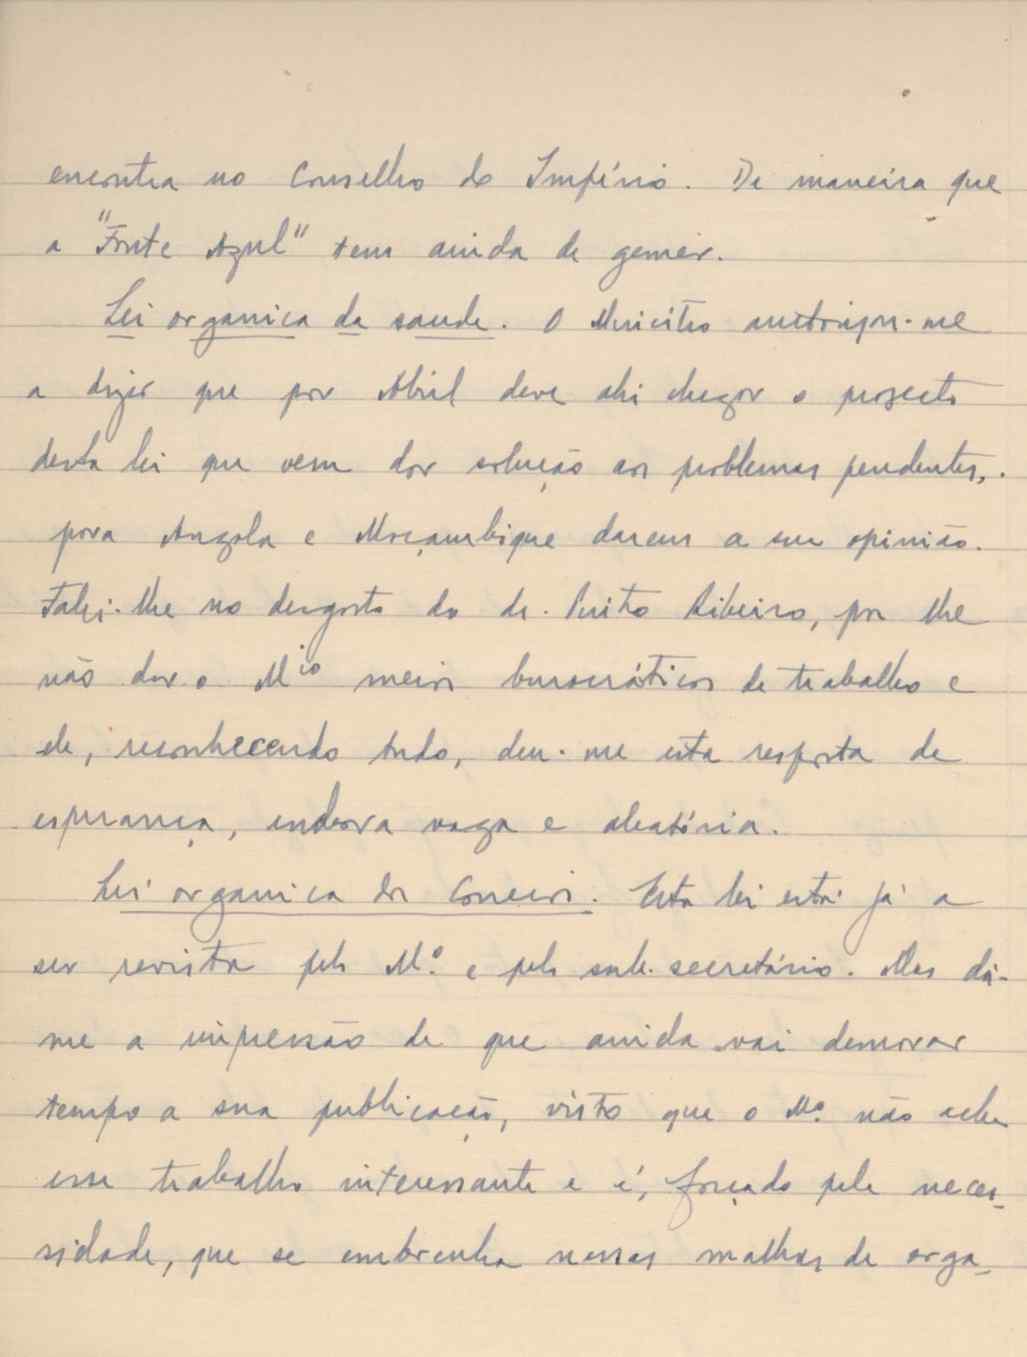 encontra no Conselho do Império. De maneira que
a "Fonte Azul" tem ainda de gemer.
Lei organica da saude. O Ministro autorizou-me
a dizer que por Abril deve ahi chegar o projecto
desta lei que vem dar solução aos problemas pendentes,
para Angola e Moçambique darem a sua opinião.
Falei-lhe no desgosto do dr. Brito Ribeiro, por lhe
não dar o Mio meios burocráticos de trabalho e
ele, reconhecendo tudo, deu-me esta resposta de
esperança, embora vaga e aleatória.
Lei organica dos Correios. Esta lei está já a
ser revista pelo Mo. e pelo sub-secretário. Mas dá-
me a impressão de que ainda vai demorar
tempo a sua publicação, visto que o Mo. não acha
esse trabalho interessante e é, forçado pela neces-
sidade, que se embrenha nessas malhas de orga-